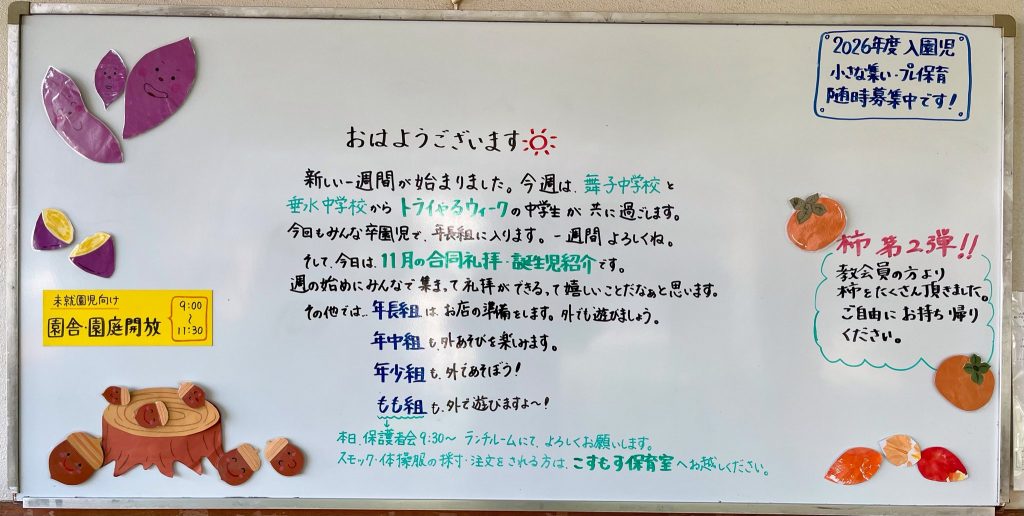 2026年度 入園児
小さな集い・プレ保育
随時募集中です!
おはようございます
新しい一週間が始まりました。今週は、舞子中学校と
垂水中学校からトライやるウィークの中学生が共に過ごします。
今回もみんな卒園児で、年長組に入ります。一週間よろしくね。
そして、今日は、11月の合同礼拝・誕生児紹介です。
週の始めにみんなで集まって礼拝ができるって嬉しいことだなぁと思います。
その他では、年長組は、お店の準備をします。外でも遊びましょう。
年中組も、外あそびを楽しみます。
年少組も、外であそぼう!
もも組も、外で遊びますよ〜!
本日、保護者会9:30〜 ランチルームにて、よろしくお願いします。
スモック・体操服の採寸・注文をされる方は、こすもす保育室へお越しください。
未就園児向け
園舎・園庭開放
9:00
〜
11:30
柿 第2弾!!
教会員の方より
柿をたくさん頂きました。
ご自由にお持ち帰り
ください。